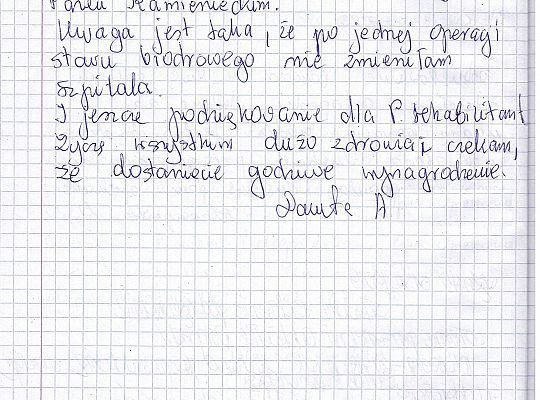 Panu Kamienieckim.
Uwaga jest taka, że po jednej operacji
stawu biodrowego nie zmieniłam
szpitala.
I jeszcze podziękowanie dla P. rehabilitant
Życzę wszystkim dużo zdrowia i czekam,
że dostaniecie godziwe wynagrodzenie.
Danuta A